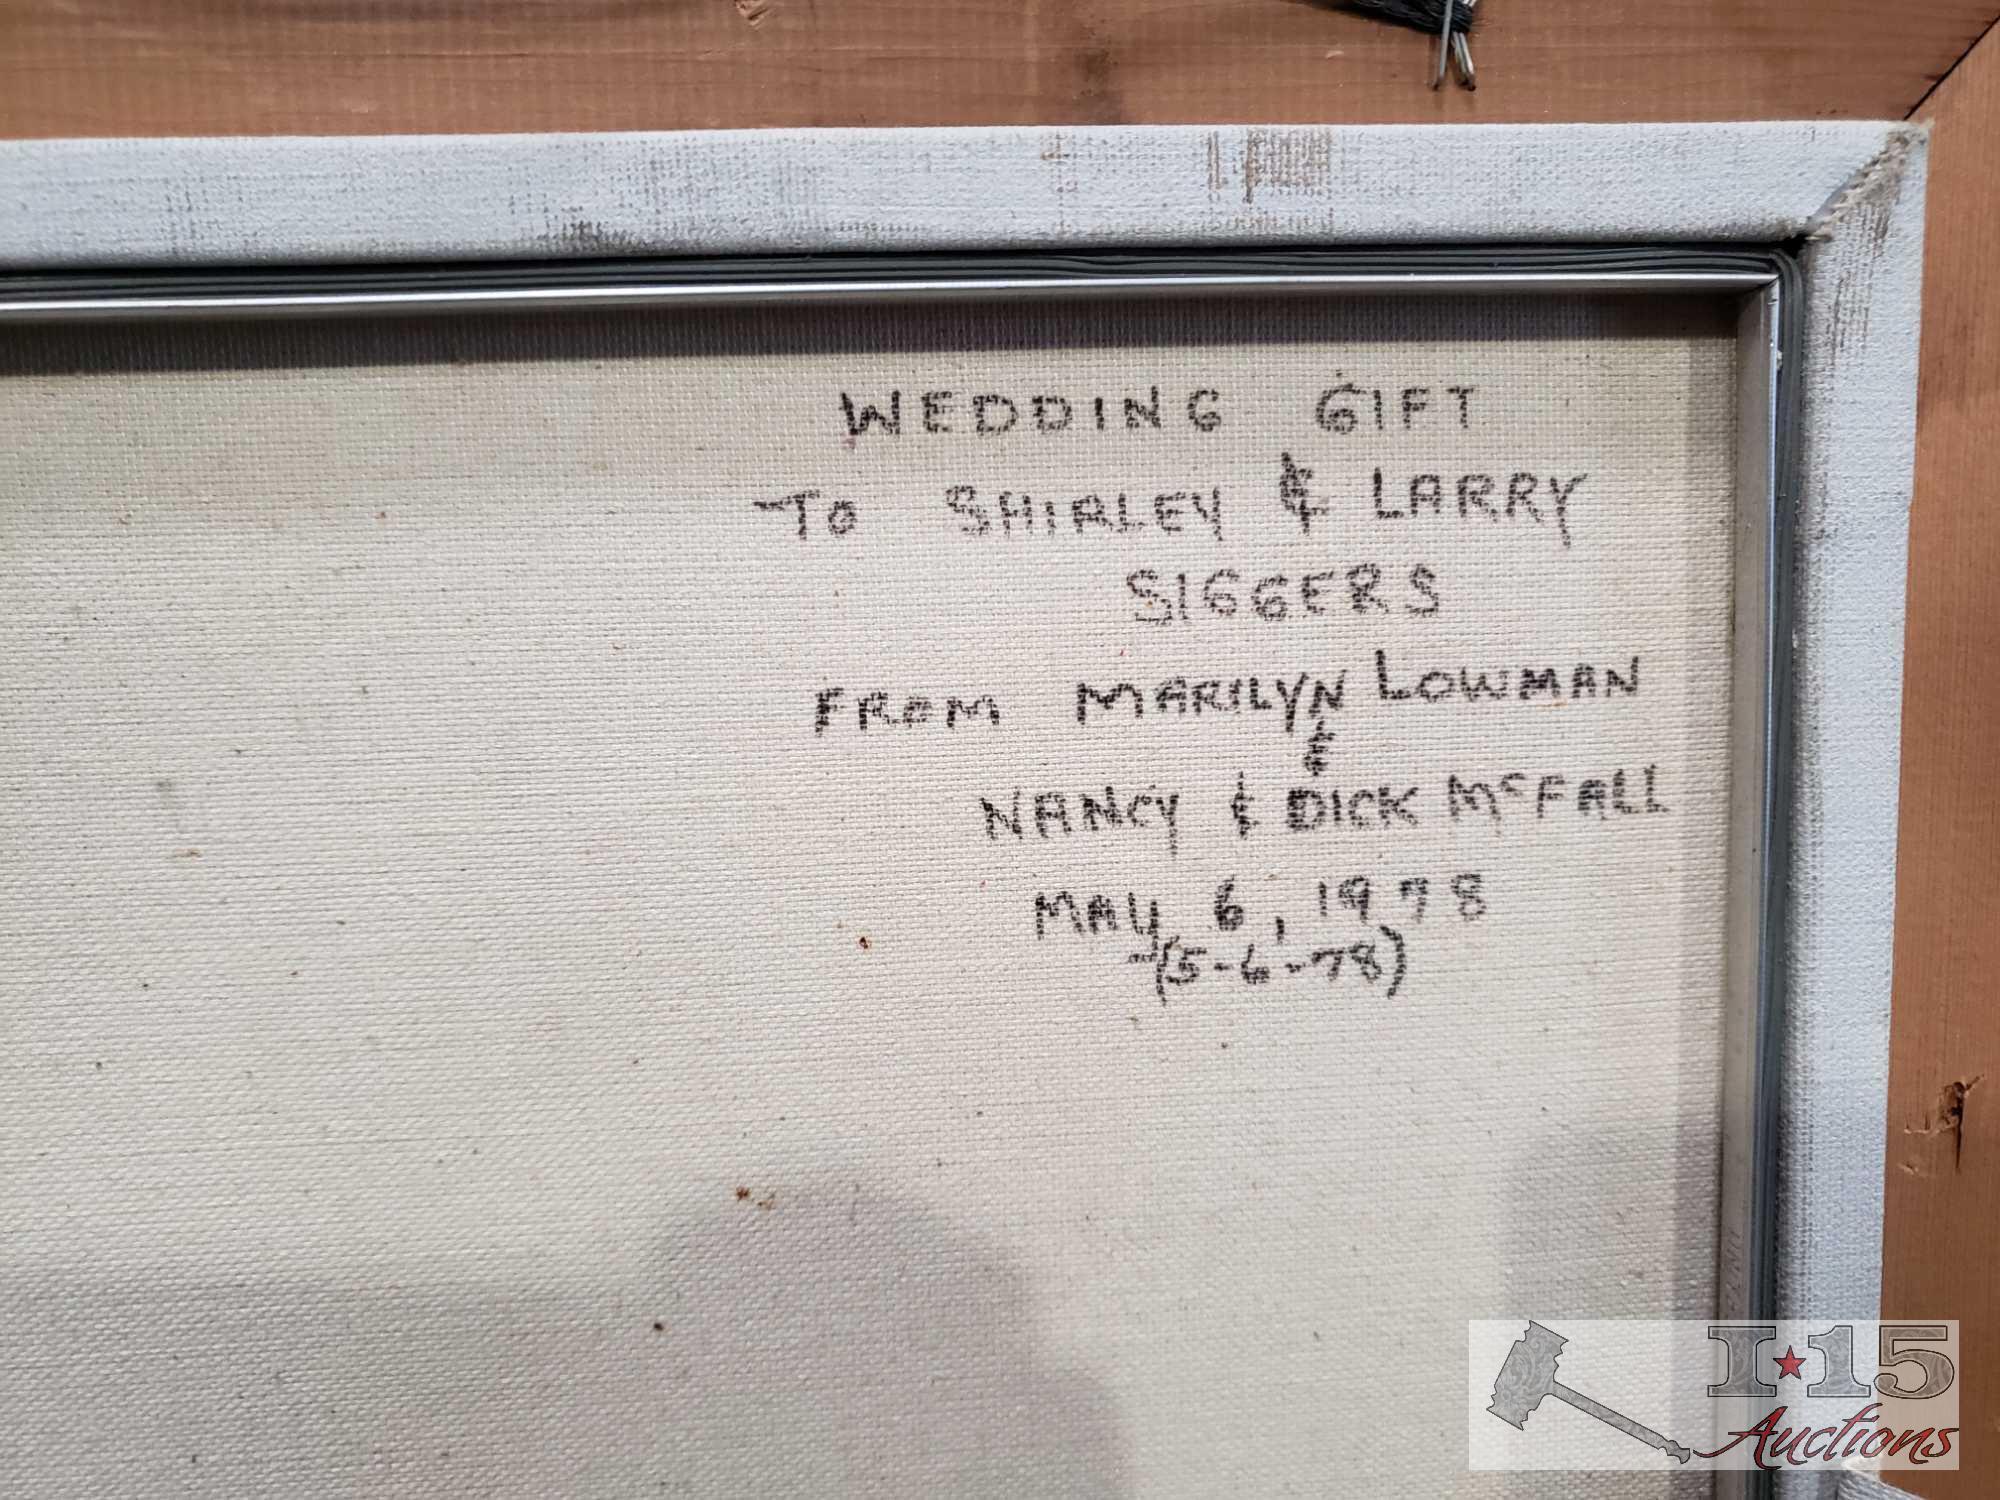 WEDDING GIFT
TO SHIRLEY & LARRY
SIGGERS
FROM MARILYN LOWMAN
&
NANCY & DICK McFALL
MAY 6, 1978
(5-6-78)
I-15
Auctions